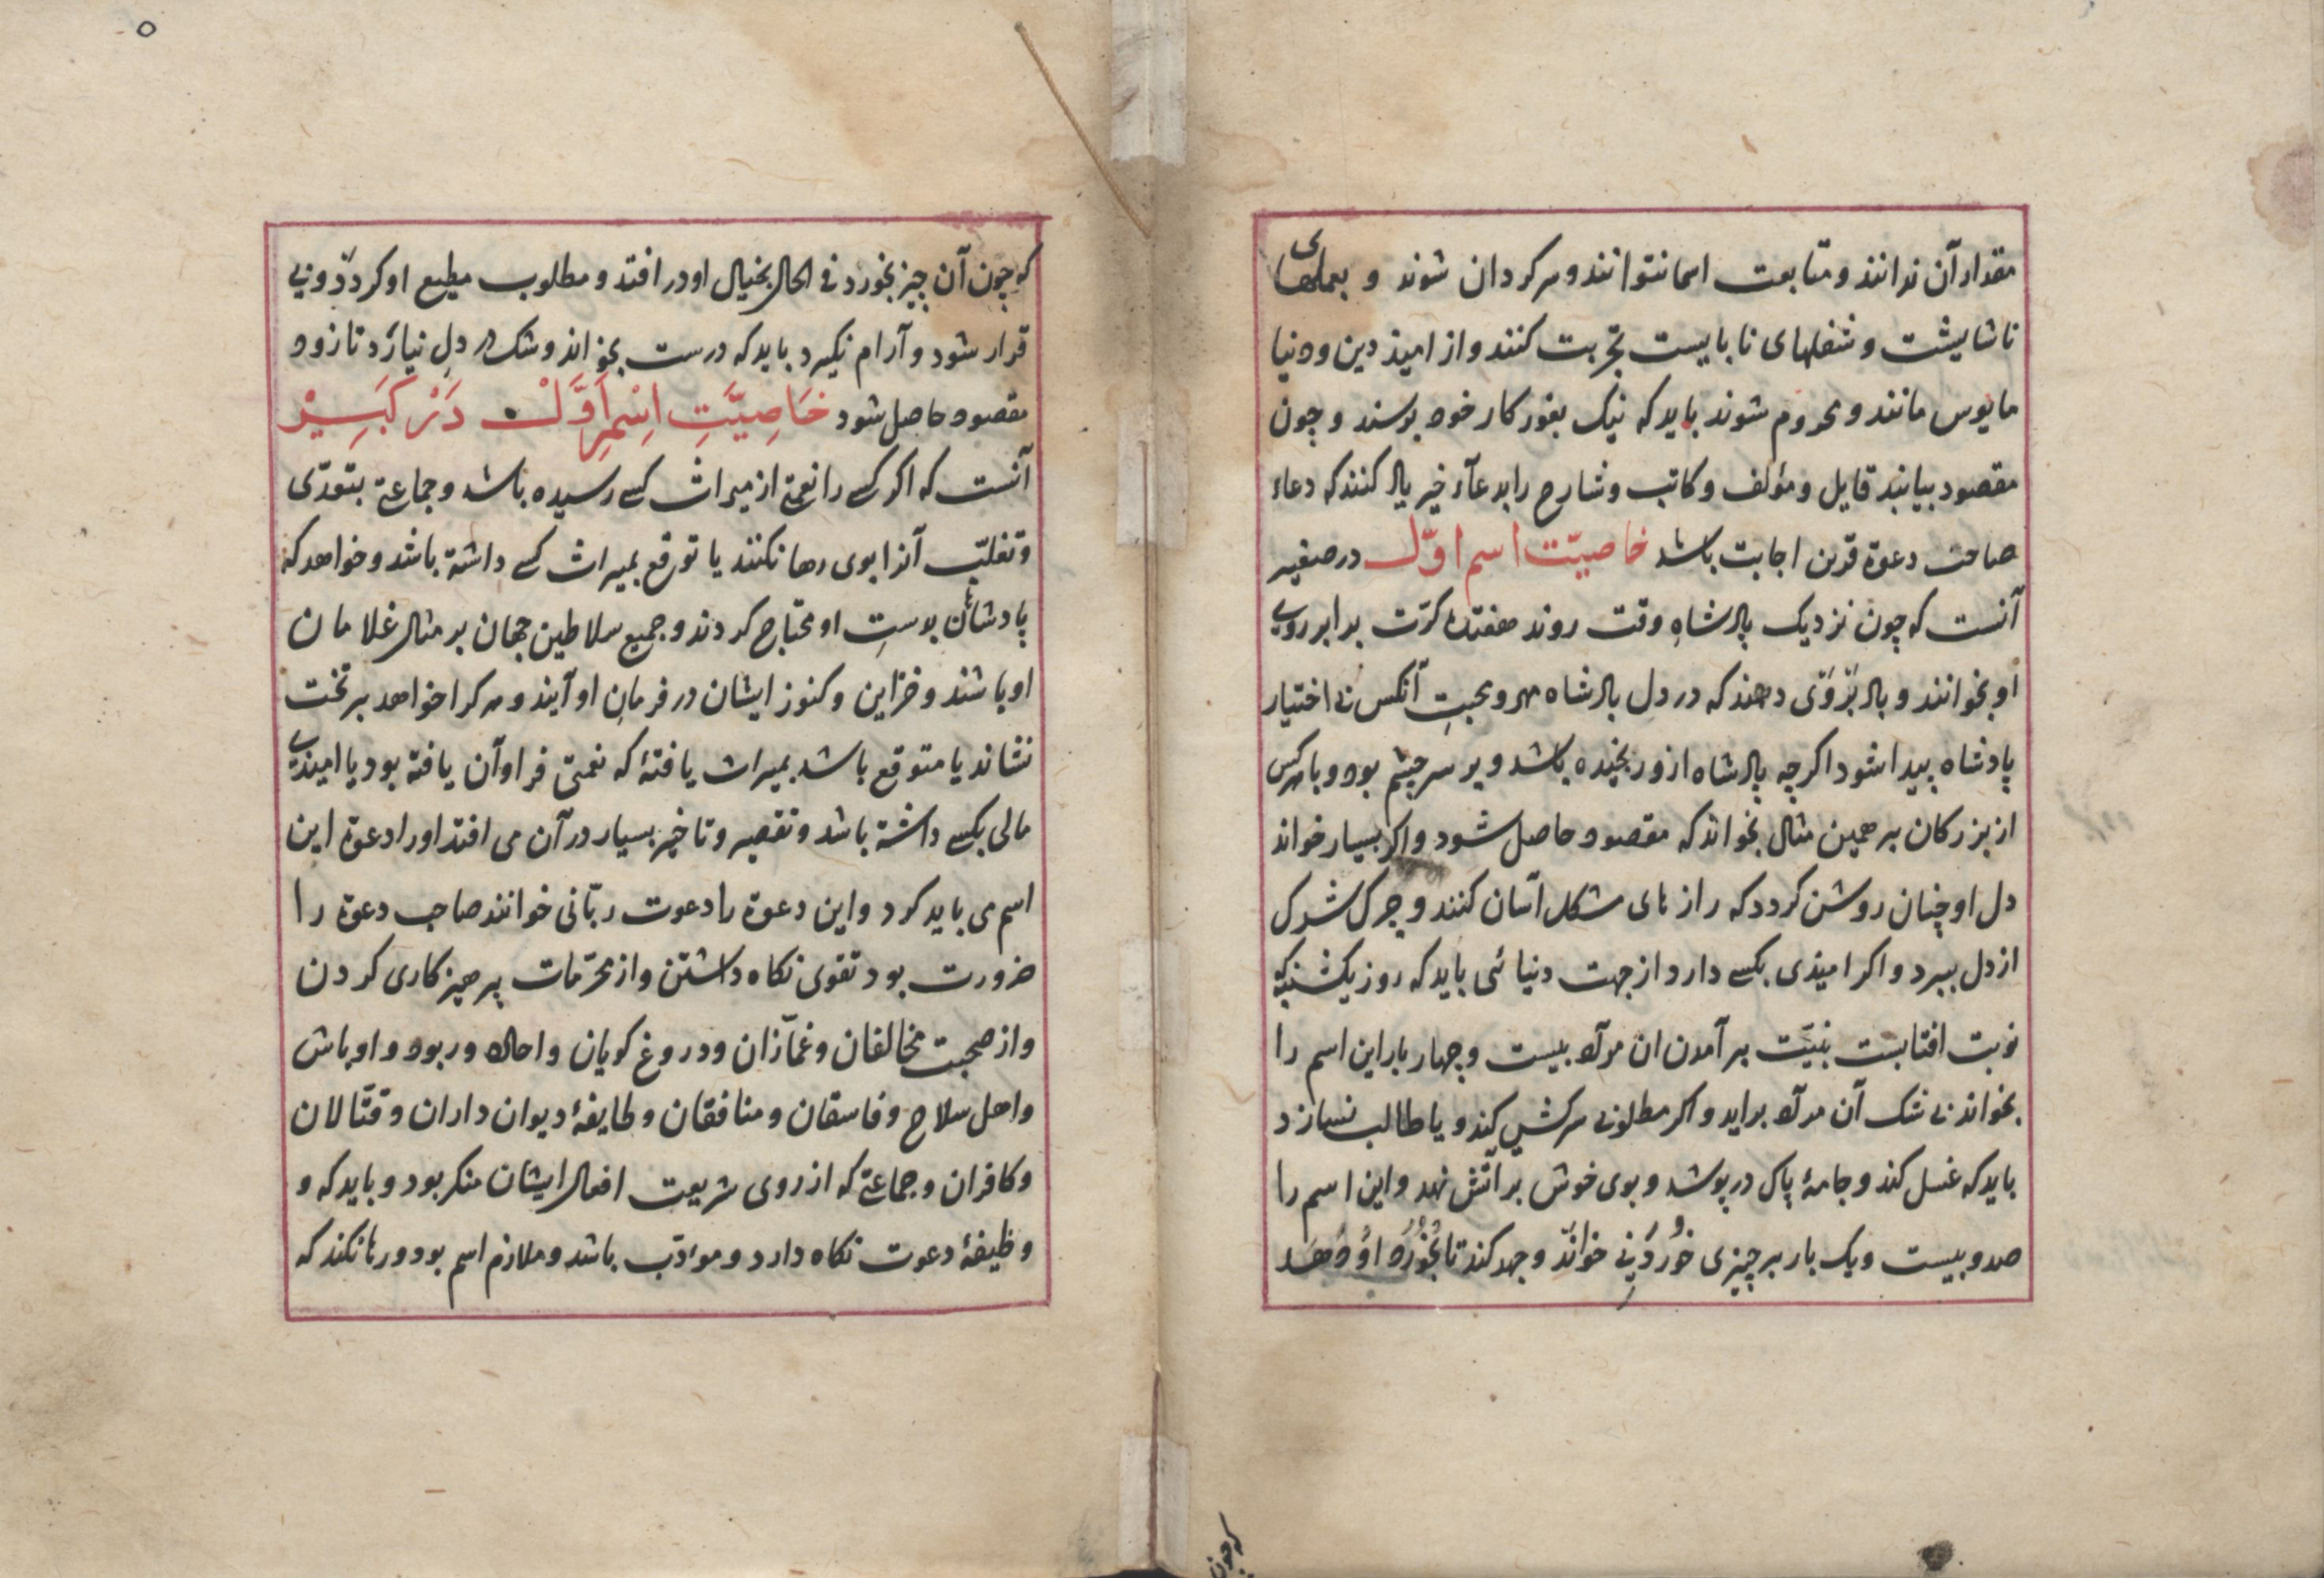 مقدار آن ندانند و متابعت اسما نتوانند و سرکردان شوند و بعملهای
ناشایشت و شغلهای نابایست تجربت کنند و از امیذ دین و دنیا
مایوس مانند و محروم شوند باید که نیک بغور کار خود برسند و چون
مقصود بیابند قایل و مؤلف و کاتب و شارح را بدعآء خیر یاد کنند که دعاء
صاحب دعوة قرین اجابت باشد خاصیّت اسم اوّل در صغیر
آنست که چون نزدیک پادشاهِ وقت روند هفتده کرّت برابر روی
او بخوانند و باد بَرْوَی دهند که در دل پادشاه مهر و محبتِ آنکس بی اختیار
پادشاه پیدا شود اکرچه پادشاه ازو رنجیده باشد و بر سر چشم بود و با هر کس
از بزرکان بر همین مثال بخواند که مقصود حاصل شود و اکر بسیار خواند
دل او چنان روشن کردد که رازهای مشکل آسان کنند و چرک شرک
از دل ببرد و اکر امیذی بکسے دارد از جهت دنیائی باید که روز یکشنبه که
نوبت افتابست بنیّت بر آمدن ان مراد بیست و چهار بار این اسم را
بخواند بی شک آن مراد براید و اکر مطلوبی سرکشی کند و یا طالب نسازد
باید که غسل کند و جامهٔ پاک در پوشد و بوی خوش بر آتش نهد و این اسم را
صد و بیست و یک بار بر چیزی خُوردَنِی خواند و جهد کند تا بخُورْدِ اُو دَهَد
که چون
که چون آن چیز بخورد فی الحال بخیال او در افتد و مطلوب مطیع او کردد و بی
قرار شود و آرام نکیرد باید که درست بخواند و شک در دلِ نیارد تا زود
مقصود حاصل شود خَاصِیَّتِ اِسْمِ اَوَّلْ دَرْ کَبَیِیْر
آنست که اکر کسے را نعمتے از میراث کسے رسیده باشد و جماعتے بتعدّی
و تغلّب آنرا بوی رها نکنند یا توقع بمیراث کسے داشتة باشد و خواهد که
پادشاهان بدستِ او محتاج کردند و جمیع سلاطین جهان بر مثال غلامان
او باشند و خزاین و کنوز ایشان در فرمانِ او آیند و هر کرا خواهد بر تخت
نشاند یا متوقع باشد بمیراث یافتهٔ که نعمتی فراوآن یافتة بود یا امیذی
مالی بکسے داشتة باشد و تقصیر و تاخیر بسیار در آن می افتد او را دعوة این
اسم می باید کرد و این دعوة را دعوت ربّانی خوانند صاحب دعوة را
ضرورت بود تقوی نکاه داشتن و از محرّمات پرهیزکاری کردن
و از صحبت مخالفان و غمّآزان و دروغ کویان و و اوباش
و اهل سلاح و فاسقان و منافقان و طایفهٔ دیوان داران و قتّالان
و کافران و جماعتے که از روی شریعت افعال ایشان منکر بود و باید که و
وظیفهٔ دعوت نکاه دارد و موءدّب باشد و ملازم اسم بود و رها نکند که